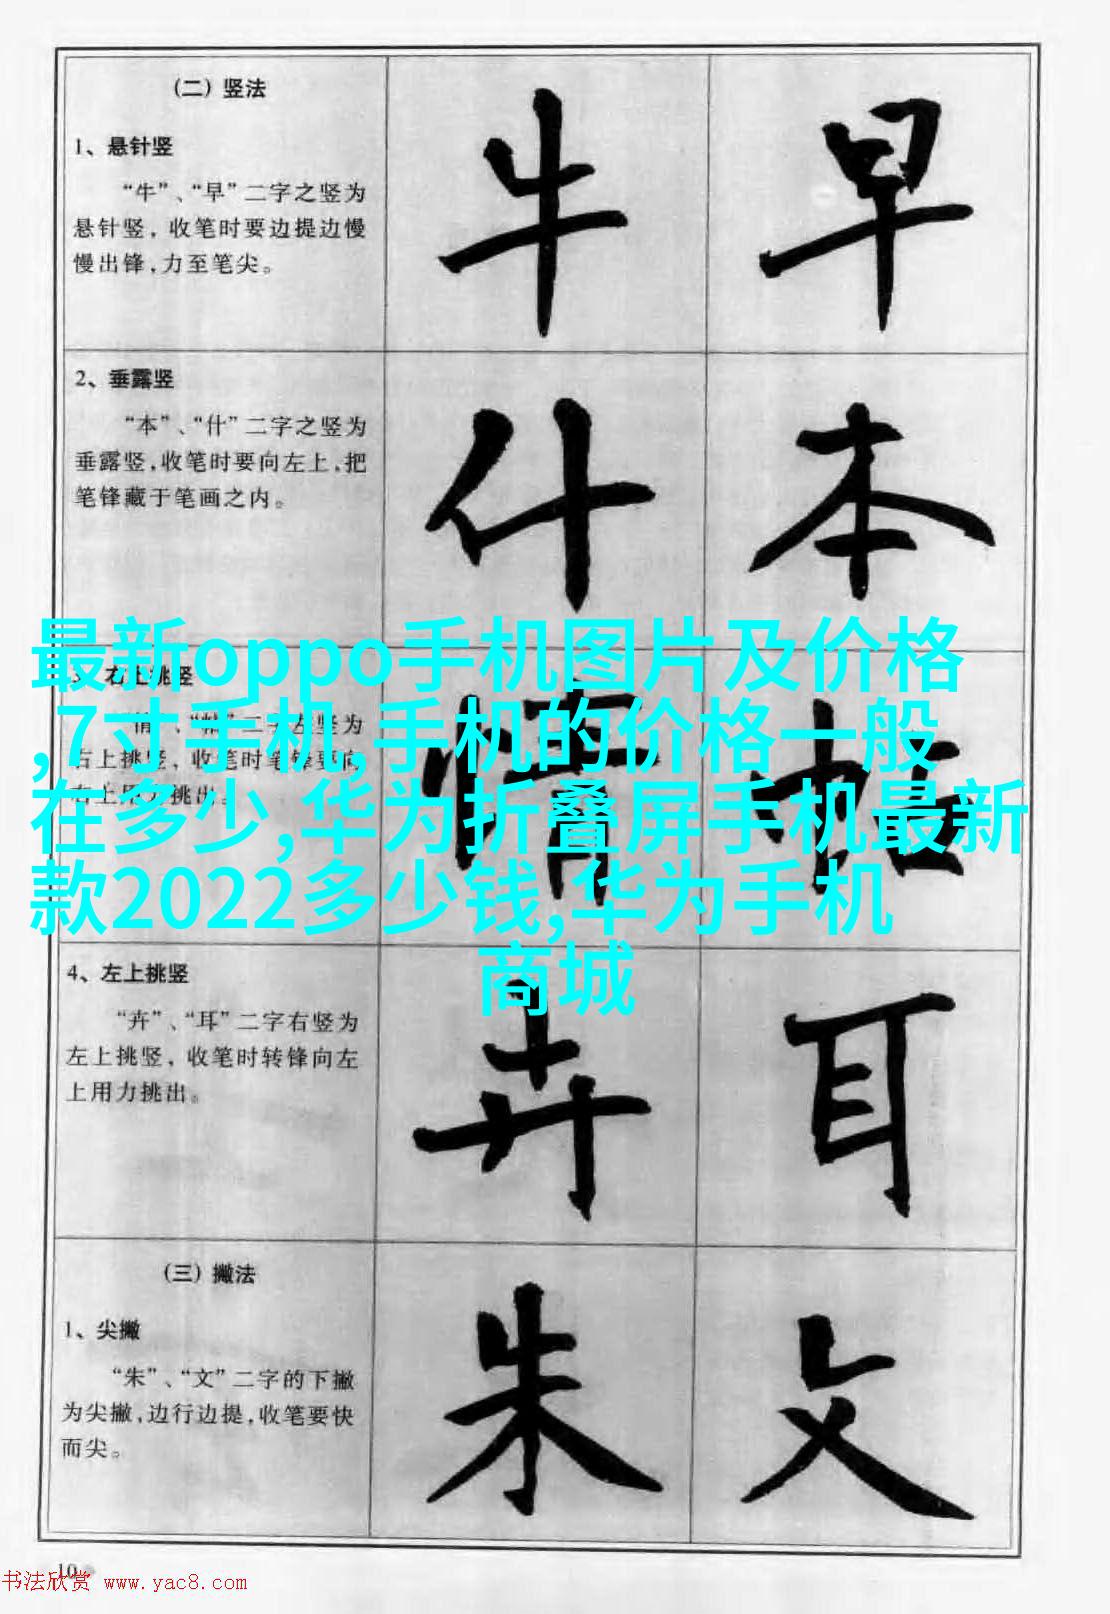 (二) 竖法
1、悬针竖
“牛”、“早”二字之竖为
悬针竖, 收笔时要边提边慢
慢出锋,力至笔尖。
牛 早
2、垂露竖
“本”、“什”二字之竖为
垂露竖,收笔时要向左上,把
笔锋藏于笔画之内。
什 本
右上挑竖
二字左竖为
右上挑竖, 收笔时笔锋要向
右上用力挑出。
情 帖
最新oppo手机图片及价格
,7寸手机,手机的价格一般
在多少,华为折叠屏手机最新
款2022多少钱,华为手机
商城
4、左上挑竖
“卉”、“耳”二字右竖为
左上挑竖, 收笔时转锋向左
上用力挑出。
卉 耳
(三) 撇法
1、尖撇
“朱”、“文”二字的下撇
为尖撇,边行边提,收笔要快
而尖。
朱 文
10
书法欣赏 www.yac8.com